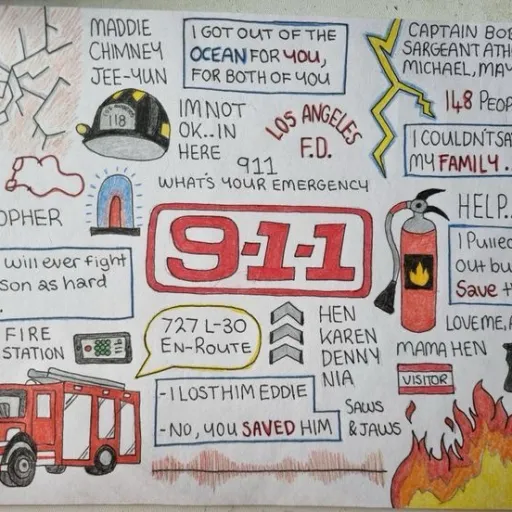 MADDIE
CHIMNEY
JEE-YUN
I GOT OUT OF THE
OCEAN FOR YOU,
FOR BOTH OF YOU
CAPTAIN BOB
SARGEANT ATH
MICHAEL, MAY
118
IM NOT
OK..IN
HERE
LOS ANGELES
F.D.
148 PEOP
I COULDN'T SA
MY FAMILY..
911
WHAT'S YOUR EMERGENCY
OPHER
9-1-1
HELP..
will ever fight
son as hard
I Pulled
out bu
Save t
727 L-30
EN-ROUTE
HEN
KAREN
DENNY
NIA
LOVE ME, A
MAMA HEN
VISITOR
FIRE
STATION
-I LOST HIM EDDIE
-NO, YOU SAVED HIM
SAWS
& JAWS